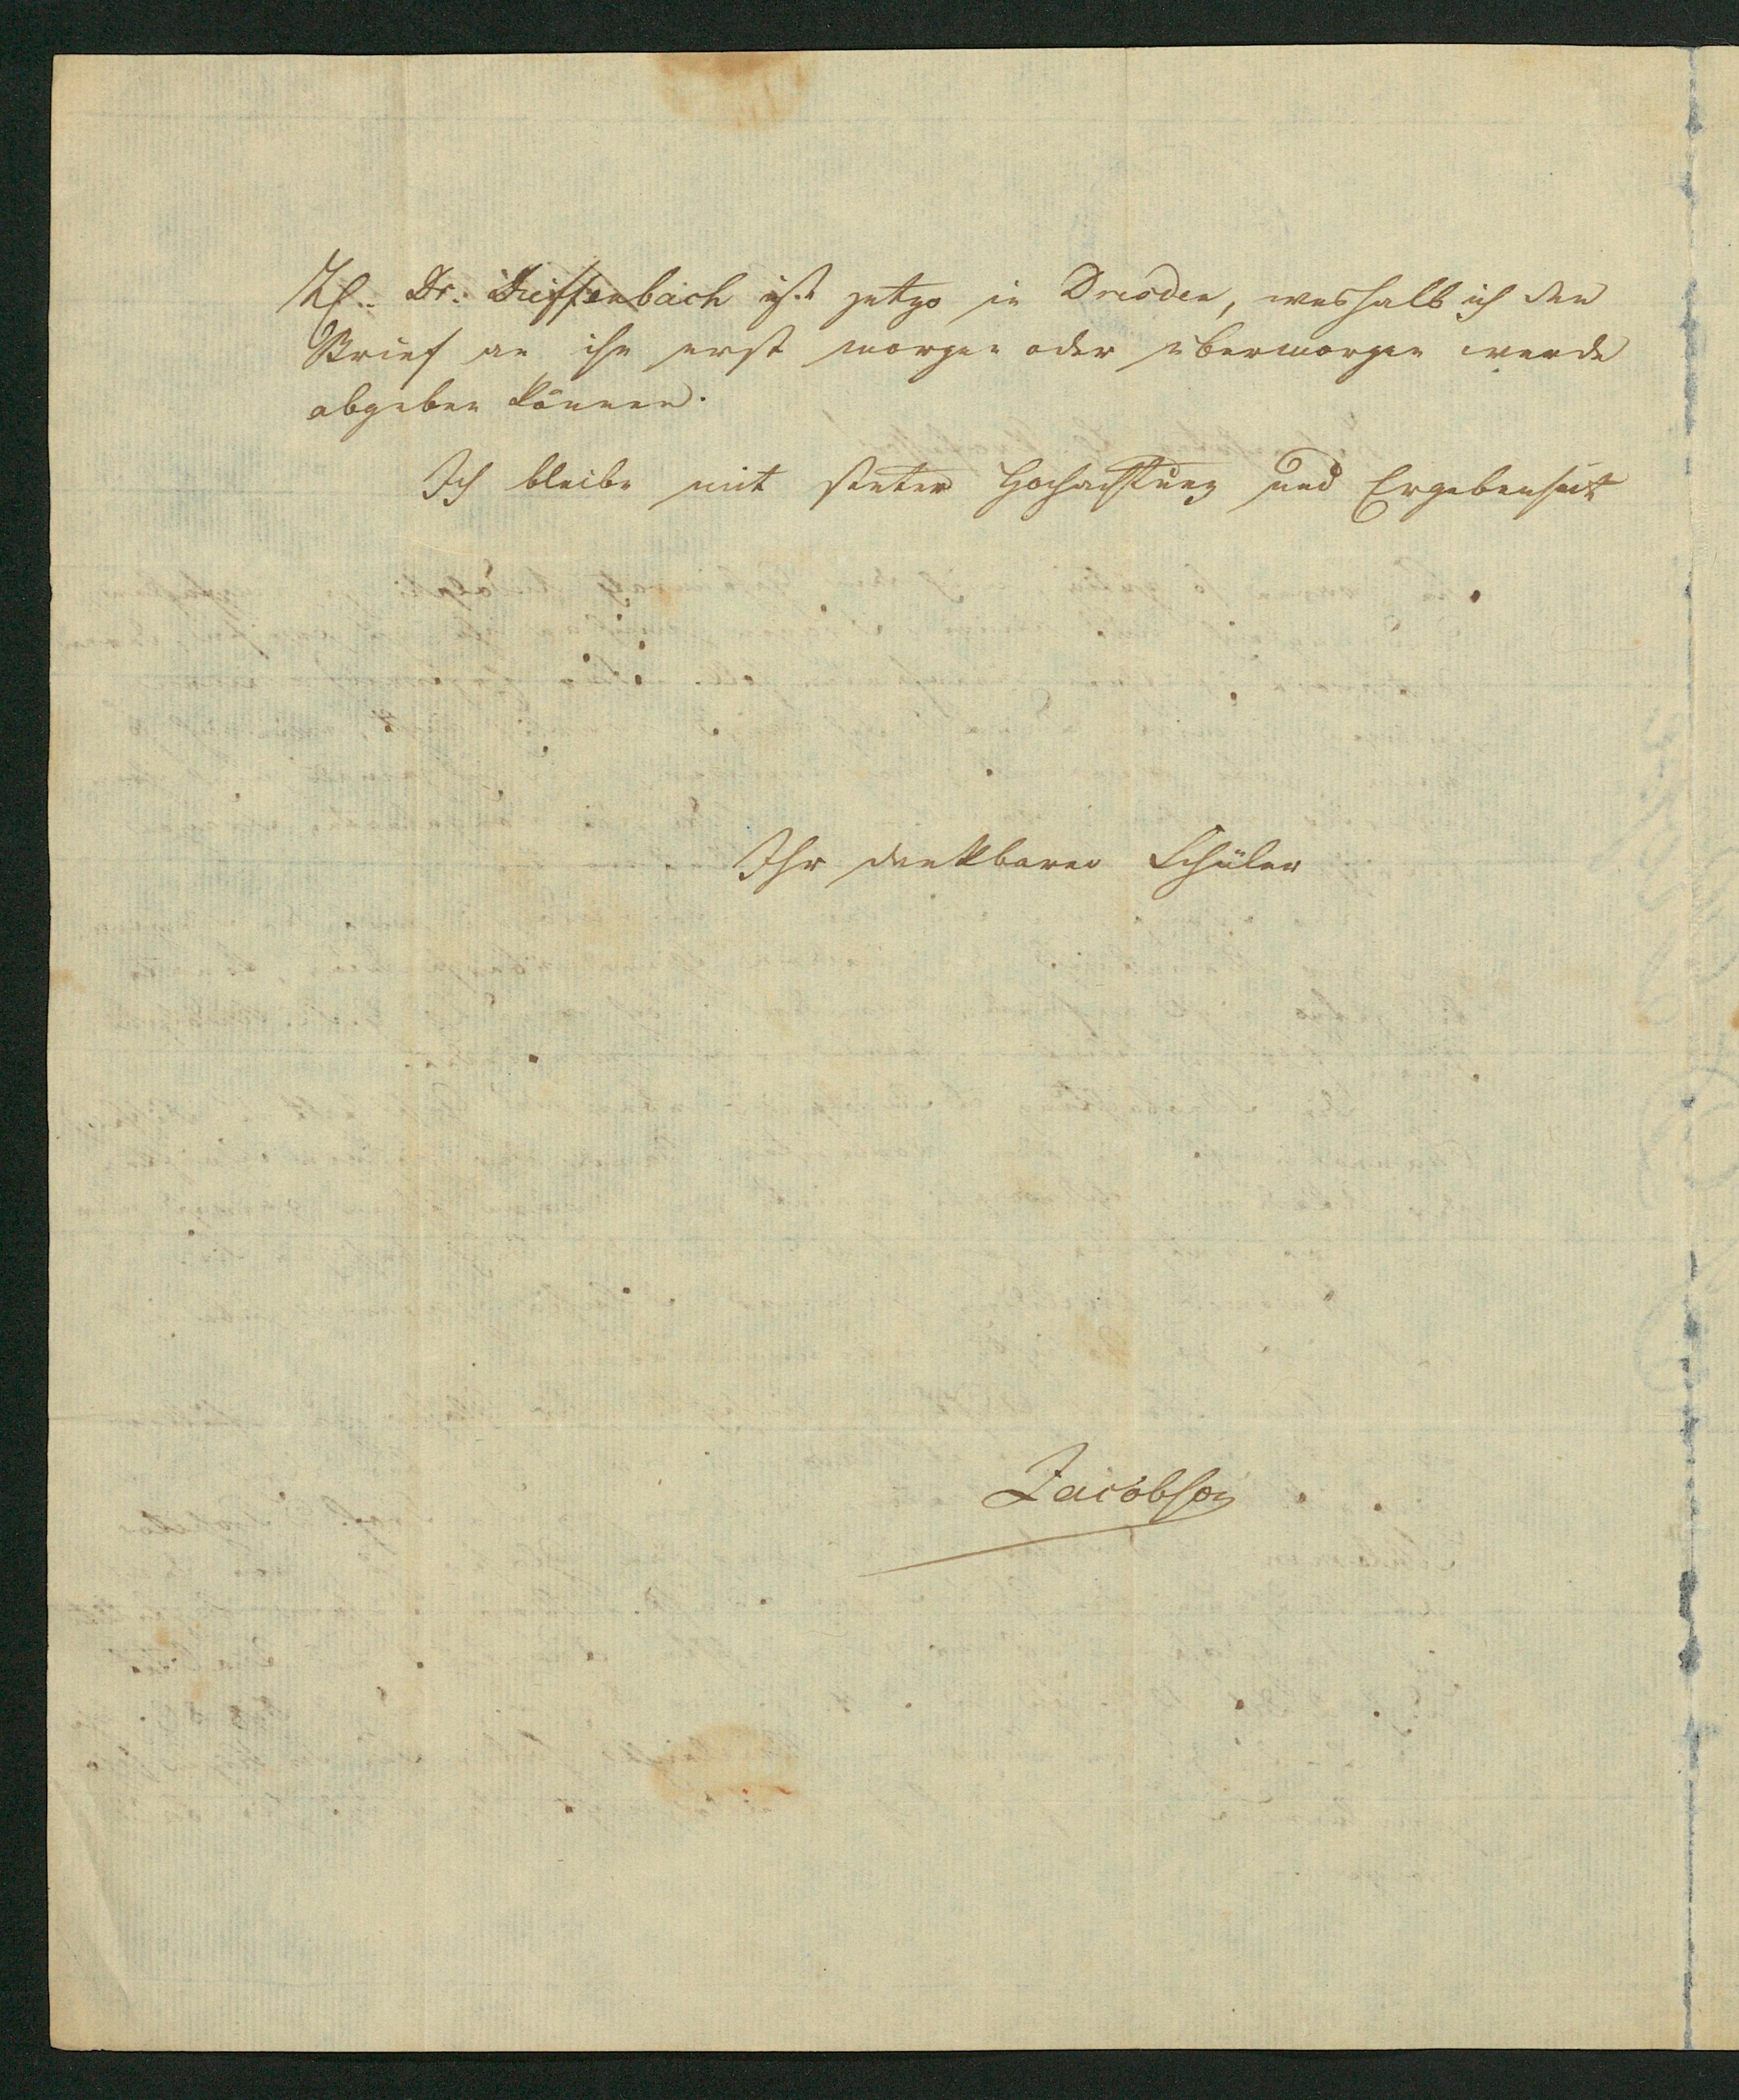 H. Dr. Dieffenbach ist jetzo in Dresden, weshalb ich den
Brief an ihn erst morgen oder übermorgen werde
abgeben können.
Ich bleibe mit steter Hochachtung und Ergebenheit
Ihr dankbarer Schüler
Jacobson